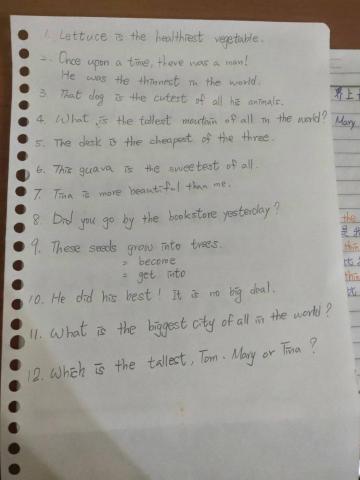 1. Lettuce is the healthiest vegetable.
2. Once upon a time, there was a man!
He was the thinnest in the world.
3. That dog is the cutest of all his animals.
4. What is the tallest mountain of all in the world?
5. The desk is the cheapest of the three.
6. This guava is the sweetest of all.
7. Tina is more beautiful than me.
8. Did you go by the bookstore yesterday?
9. These seeds grow into trees.
= become
= get into
10. He did his best! It is no big deal.
11. What is the biggest city of all in the world?
12. Which is the tallest, Tom. Mary or Tina?
界上
Mary
the
是
thi
比
this
比